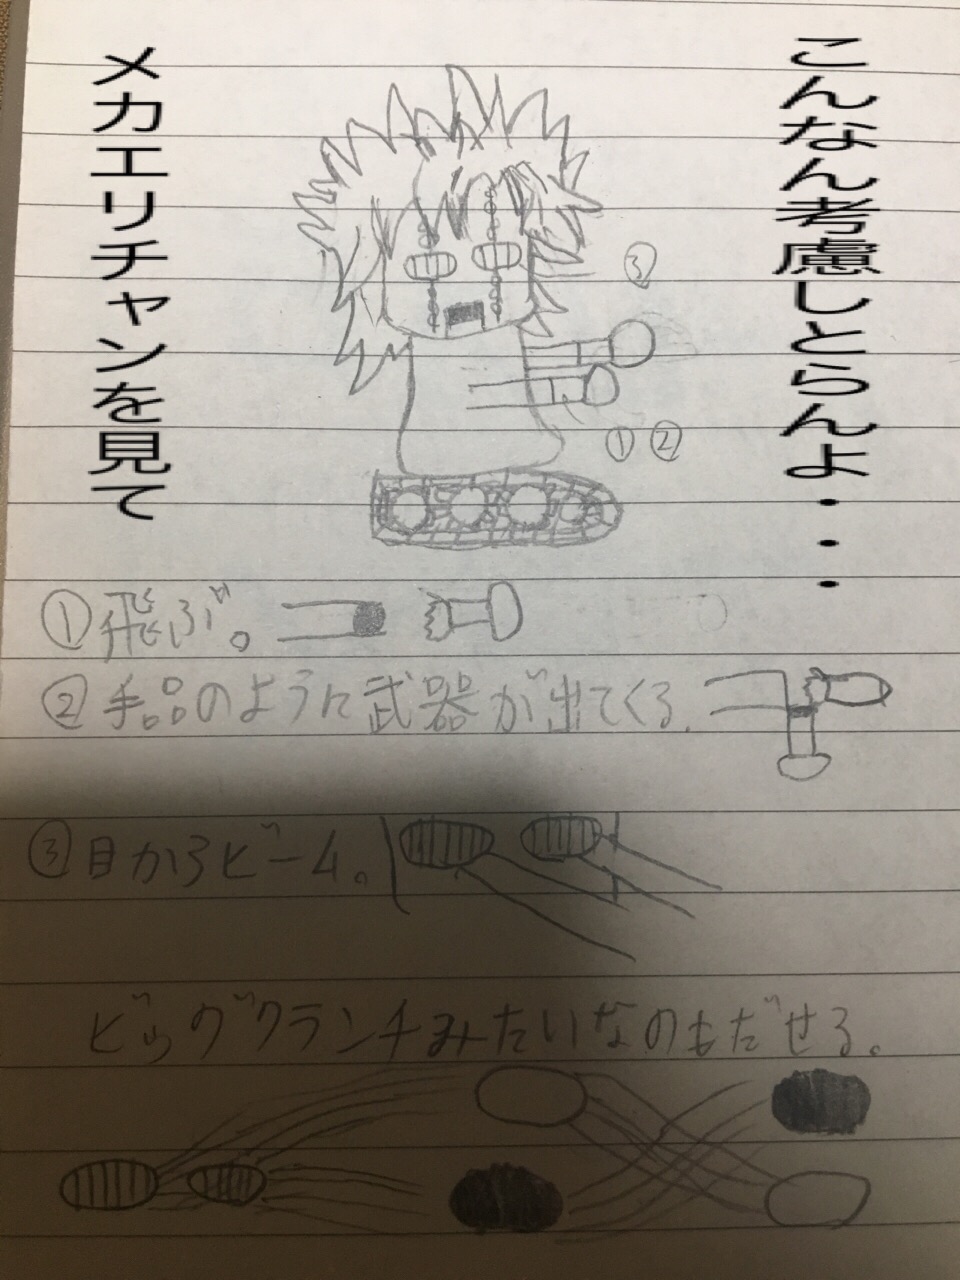 こんなん考慮しとらんよ・・・
メカエリチャンを見て
③
① ②
①飛ぶ。
②手品のように武器が出てくる.
③目からビーム。
ビッグクランチみたいなのもだせる。